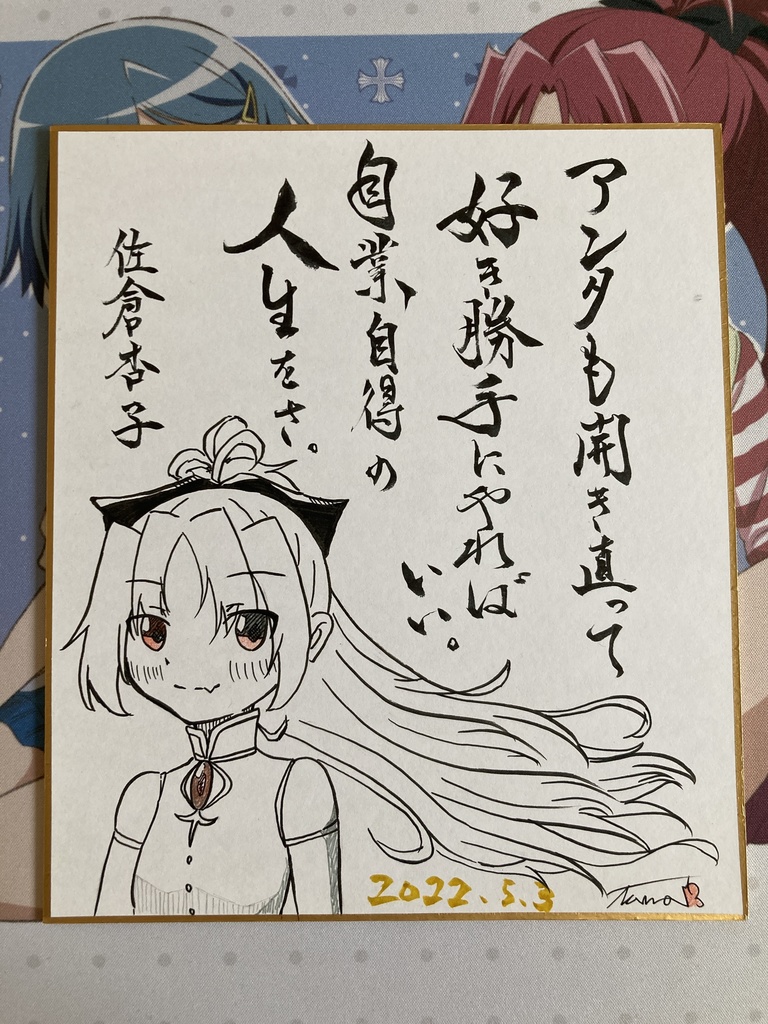 アンタも開き直って
好き勝手にやれば
いい。
自業自得の
人生をさ。
佐倉杏子
2022.5.3